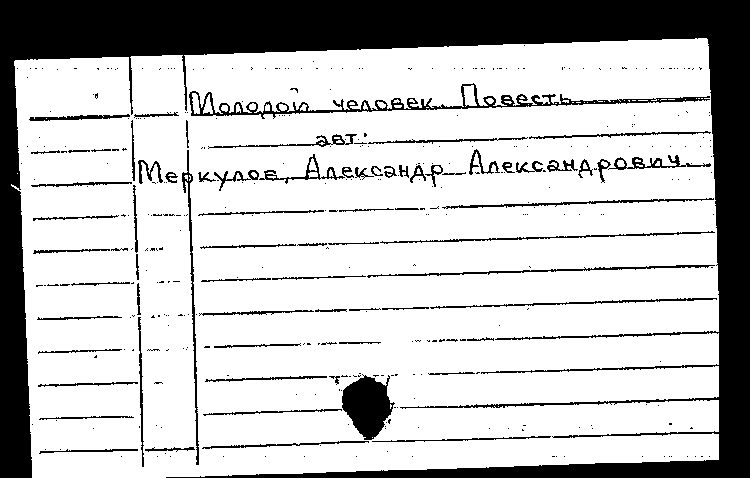 Молодой человек. Повесть
авт.
Меркулов, Александр Александрович.